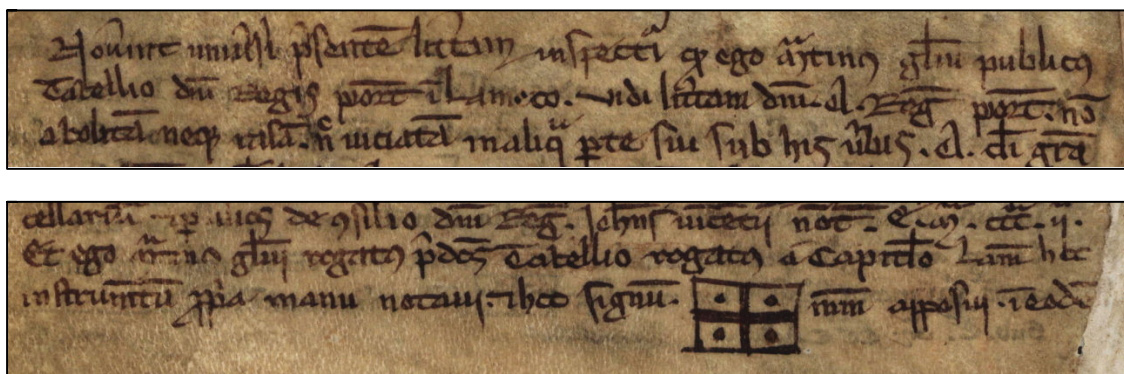 Nov̄int univ̄si p̄sentē litt̄am inspectͥ ꝙ ego mᵃrtinꝰ gl̄iu publicꝰ
Tabellio dn̄i Regis port̄ ī lam̄. vidi litt̄am dn̄i. el. Reg̅ port̄. nō
abolitā neque rasā. nͨ viciatā in aliqᵃ ꝑte sui sub his v̄bis. el. dei gr̄a
de ꝯsilio dn̄i Reg̅. Joh̄ns vicētii not̄. E. Mͣ. CCCͣ. iiͣ.
Et ego mᵃrtinꝰ gl̄iu rogatꝰ p̄dc̄s Tabellio rogatꝰ a Capitl̄o lam̄ hoc
instrum̄tū ꝓp̄a manu notavi. ⁊ hoc signū. mm̄ apposui. ī eodē